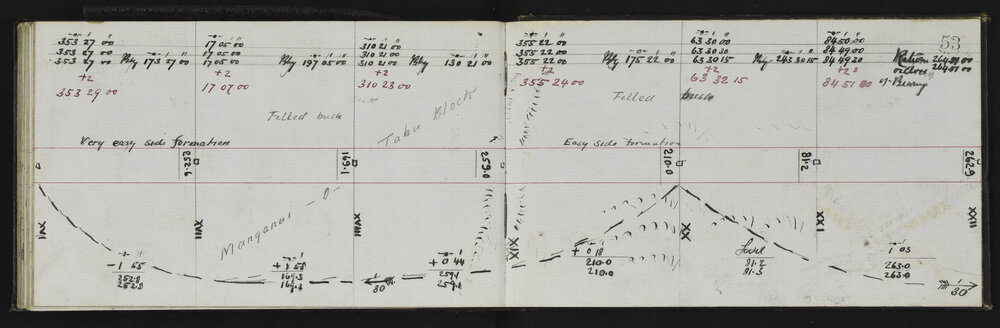 53
353 27 00
353 27 00
353 27 00
+2
353 29 00
Bky 173 27 00
17 05 00
17 05 00
17 05 00
+2
17 07 00
Bky 197 05 00
310 21 00
310 21 00
310 21 00
+2
310 23 00
Bky 130 21 00
355 22 00
355 22 00
355 22 00
+2
355 24 00
Bky 175 22 00
63 30 00
63 30 30
63 30 15
+2
63 32 15
Bky 243 30 15
84 50 00
84 49 00
84 49 30
+2
84 51 00
264 51 00
of Bearing
Felled bush
Tahu Block
Felled bush
Very easy side formation
Easy side formation
252.6
169.1
259.0
210.0
81.2
262.9
XVII
XVIII
XIX
XX
XXI
XXII
Manganui - o -
- 1 55
252.8
252.8
+ 1 58
169.3
+ 0 44
259.1
259.1
80
+ 0 18
210.0
210.0
Level
81.2
81.3
1 03
263.0
263.0
80